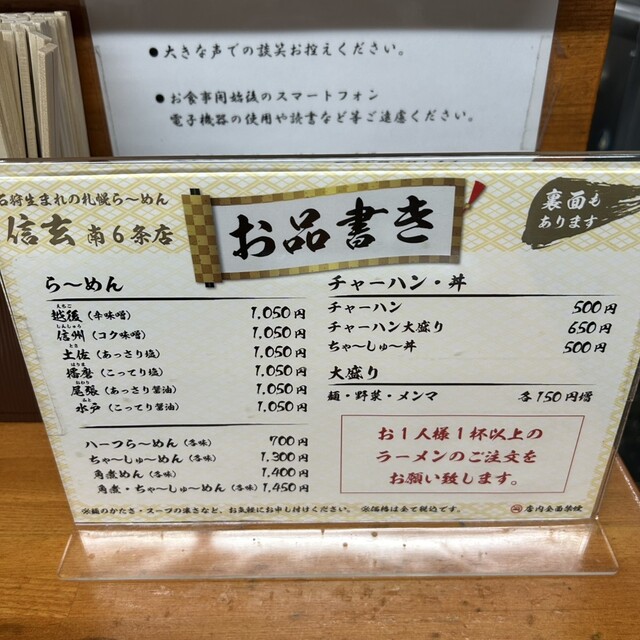 ●大きな声での談笑お控えください。
●お食事開始後のスマートフォン
電子機器の使用や読書など等ご遠慮ください。
石狩生まれの札幌ら〜めん
信玄 南6条店
お品書き
裏面も
あります
ら〜めん
えちご
越後（辛味噌） 1,050円
しんしゅう
信州（コク味噌） 1,050円
とさ
土佐（あっさり塩） 1,050円
はりま
播磨（こってり塩） 1,050円
おわり
尾張（あっさり醤油） 1,050円
みと
水戸（こってり醤油） 1,050円
ハーフら〜めん（各味） 700円
ちゃ〜しゅ〜めん（各味） 1,300円
角煮めん（各味） 1,400円
角煮・ちゃ〜しゅ〜めん（各味） 1,450円
チャーハン・丼
チャーハン 500円
チャーハン大盛り 650円
ちゃ〜しゅ〜丼 500円
大盛り
麺・野菜・メンマ 各150円増
お1人様1杯以上の
ラーメンのご注文を
お願い致します。
※麺のかたさ・スープの濃さなど、お気軽にお申し付けください。 ※価格は全て税込です。
店内全面禁煙